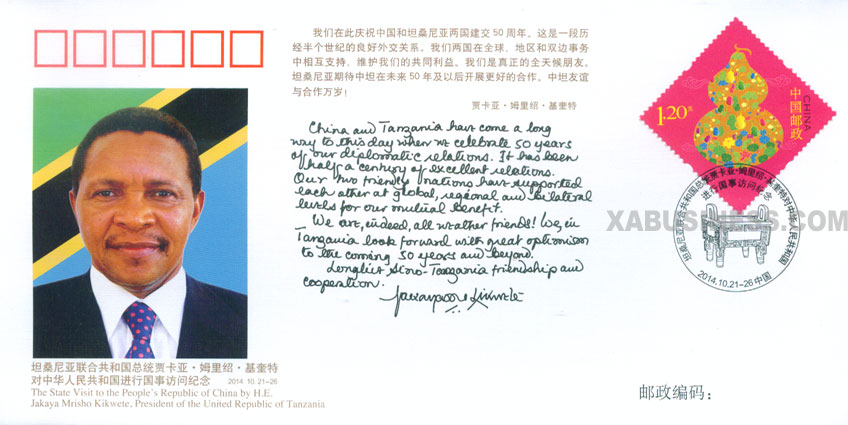 我们在此庆祝中国和坦桑尼亚两国建交50周年。这是一段历
经半个世纪的良好外交关系。我们两国在全球、地区和双边事务
中相互支持，维护我们的共同利益。我们是真正的全天候朋友。
坦桑尼亚期待中坦在未来50年及以后开展更好的合作。中坦友谊
与合作万岁！
贾卡亚·姆里绍·基奎特
China and Tanzania have come a long
way to this day when we celebrate 50 years
of our diplomatic relations. It has been
half a century of excellent relations.
Our two friendly nations have supported
each other at global, regional and bilateral
levels for our mutual benefit.
We are, indeed, all weather friends! We, in
Tanzania look forward with great optimism
to the coming 50 years and beyond.
Long live Sino-Tanzania friendship and
cooperation.
Jakaya Kikwete
1.20元
中国邮政
CHINA
坦桑尼亚联合共和国总统贾卡亚·姆里绍·基奎特对中华人民共和国
进行国事访问纪念
2014.10.21-26 中国
XABUSINESS.COM
坦桑尼亚联合共和国总统贾卡亚·姆里绍·基奎特
对中华人民共和国进行国事访问纪念 2014.10.21-26
The State Visit to the People's Republic of China by H.E.
Jakaya Mrisho Kikwete, President of the United Republic of Tanzania
邮政编码：